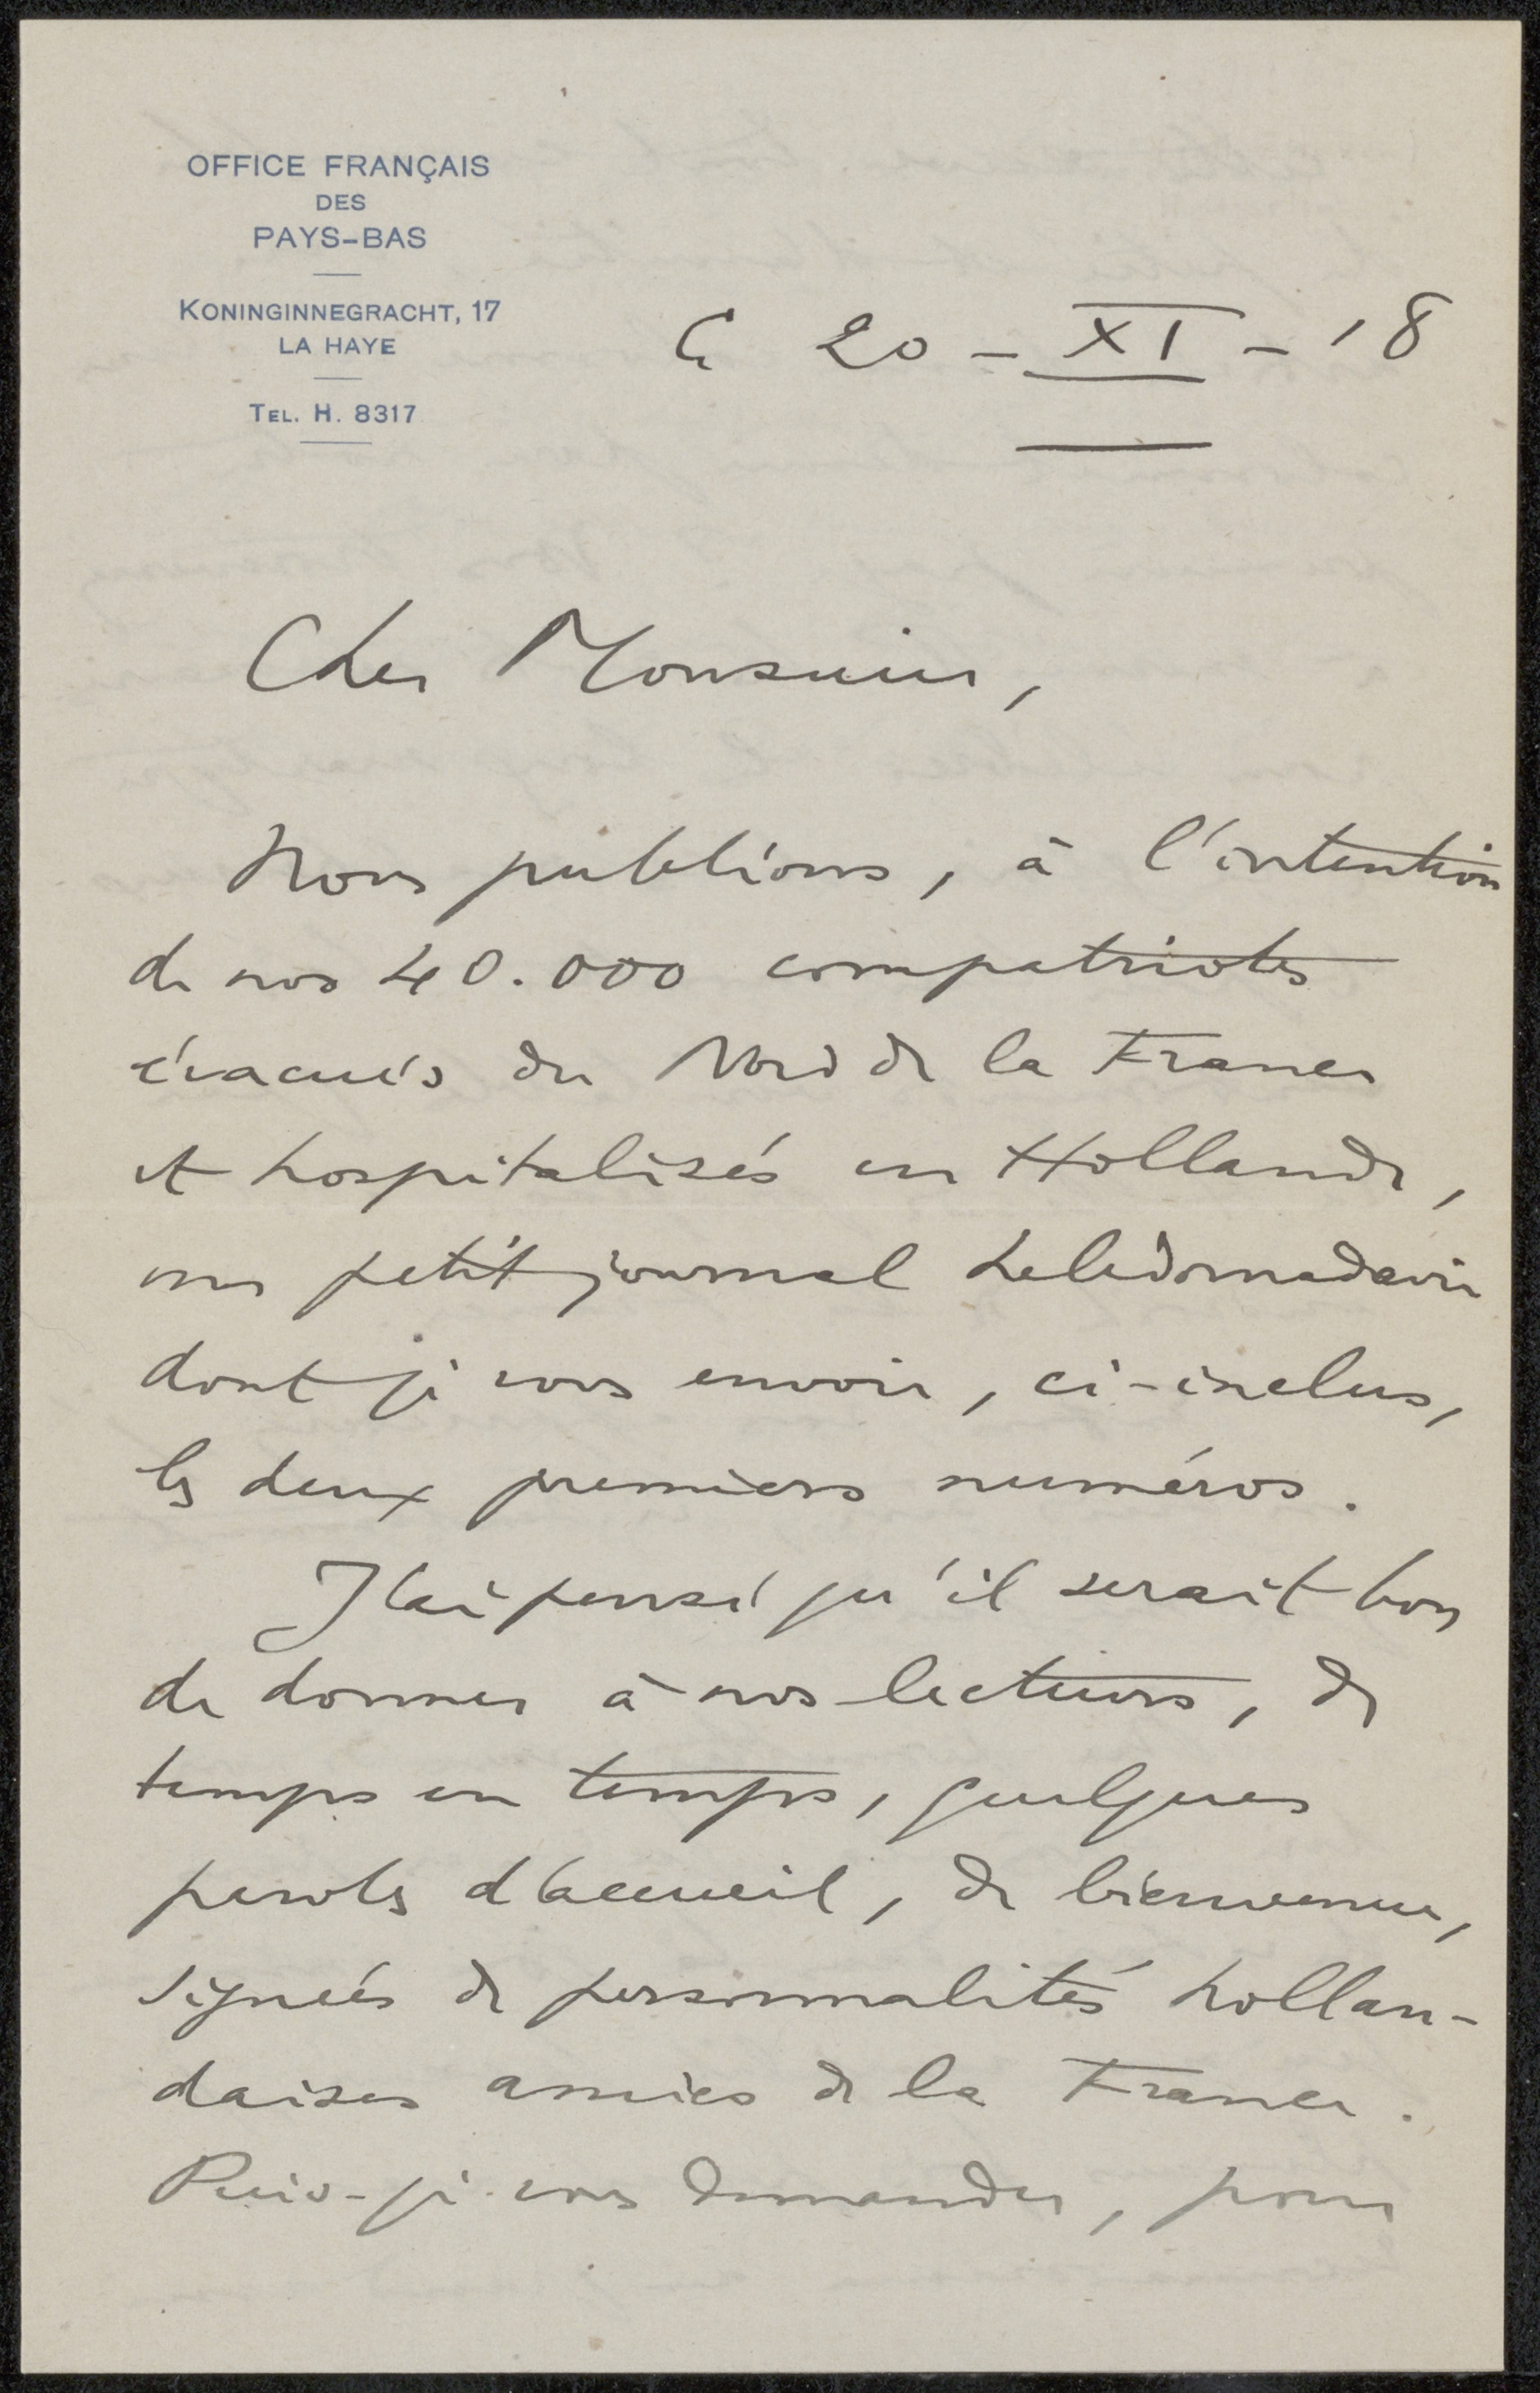 OFFICE FRANÇAIS
DES
PAYS-BAS
KONINGINNEGRACHT, 17
LA HAYE
TEL. H. 8317
Le 20 - XI - 18
Cher Monsieur,
Nous publions, à l'intention
de nos 40.000 compatriotes
évacués du Nord de la France
et hospitalisés en Hollande,
un petit journal hebdomadaire
dont je vous envoie, ci-inclus,
les deux premiers numéros.
J'ai pensé qu'il serait bon
de donner à nos lecteurs, de
temps en temps, quelques
paroles d'accueil, de bienvenue,
signées de personnalités hollan-
daises amies de la France.
Puis-je vous demander, pour